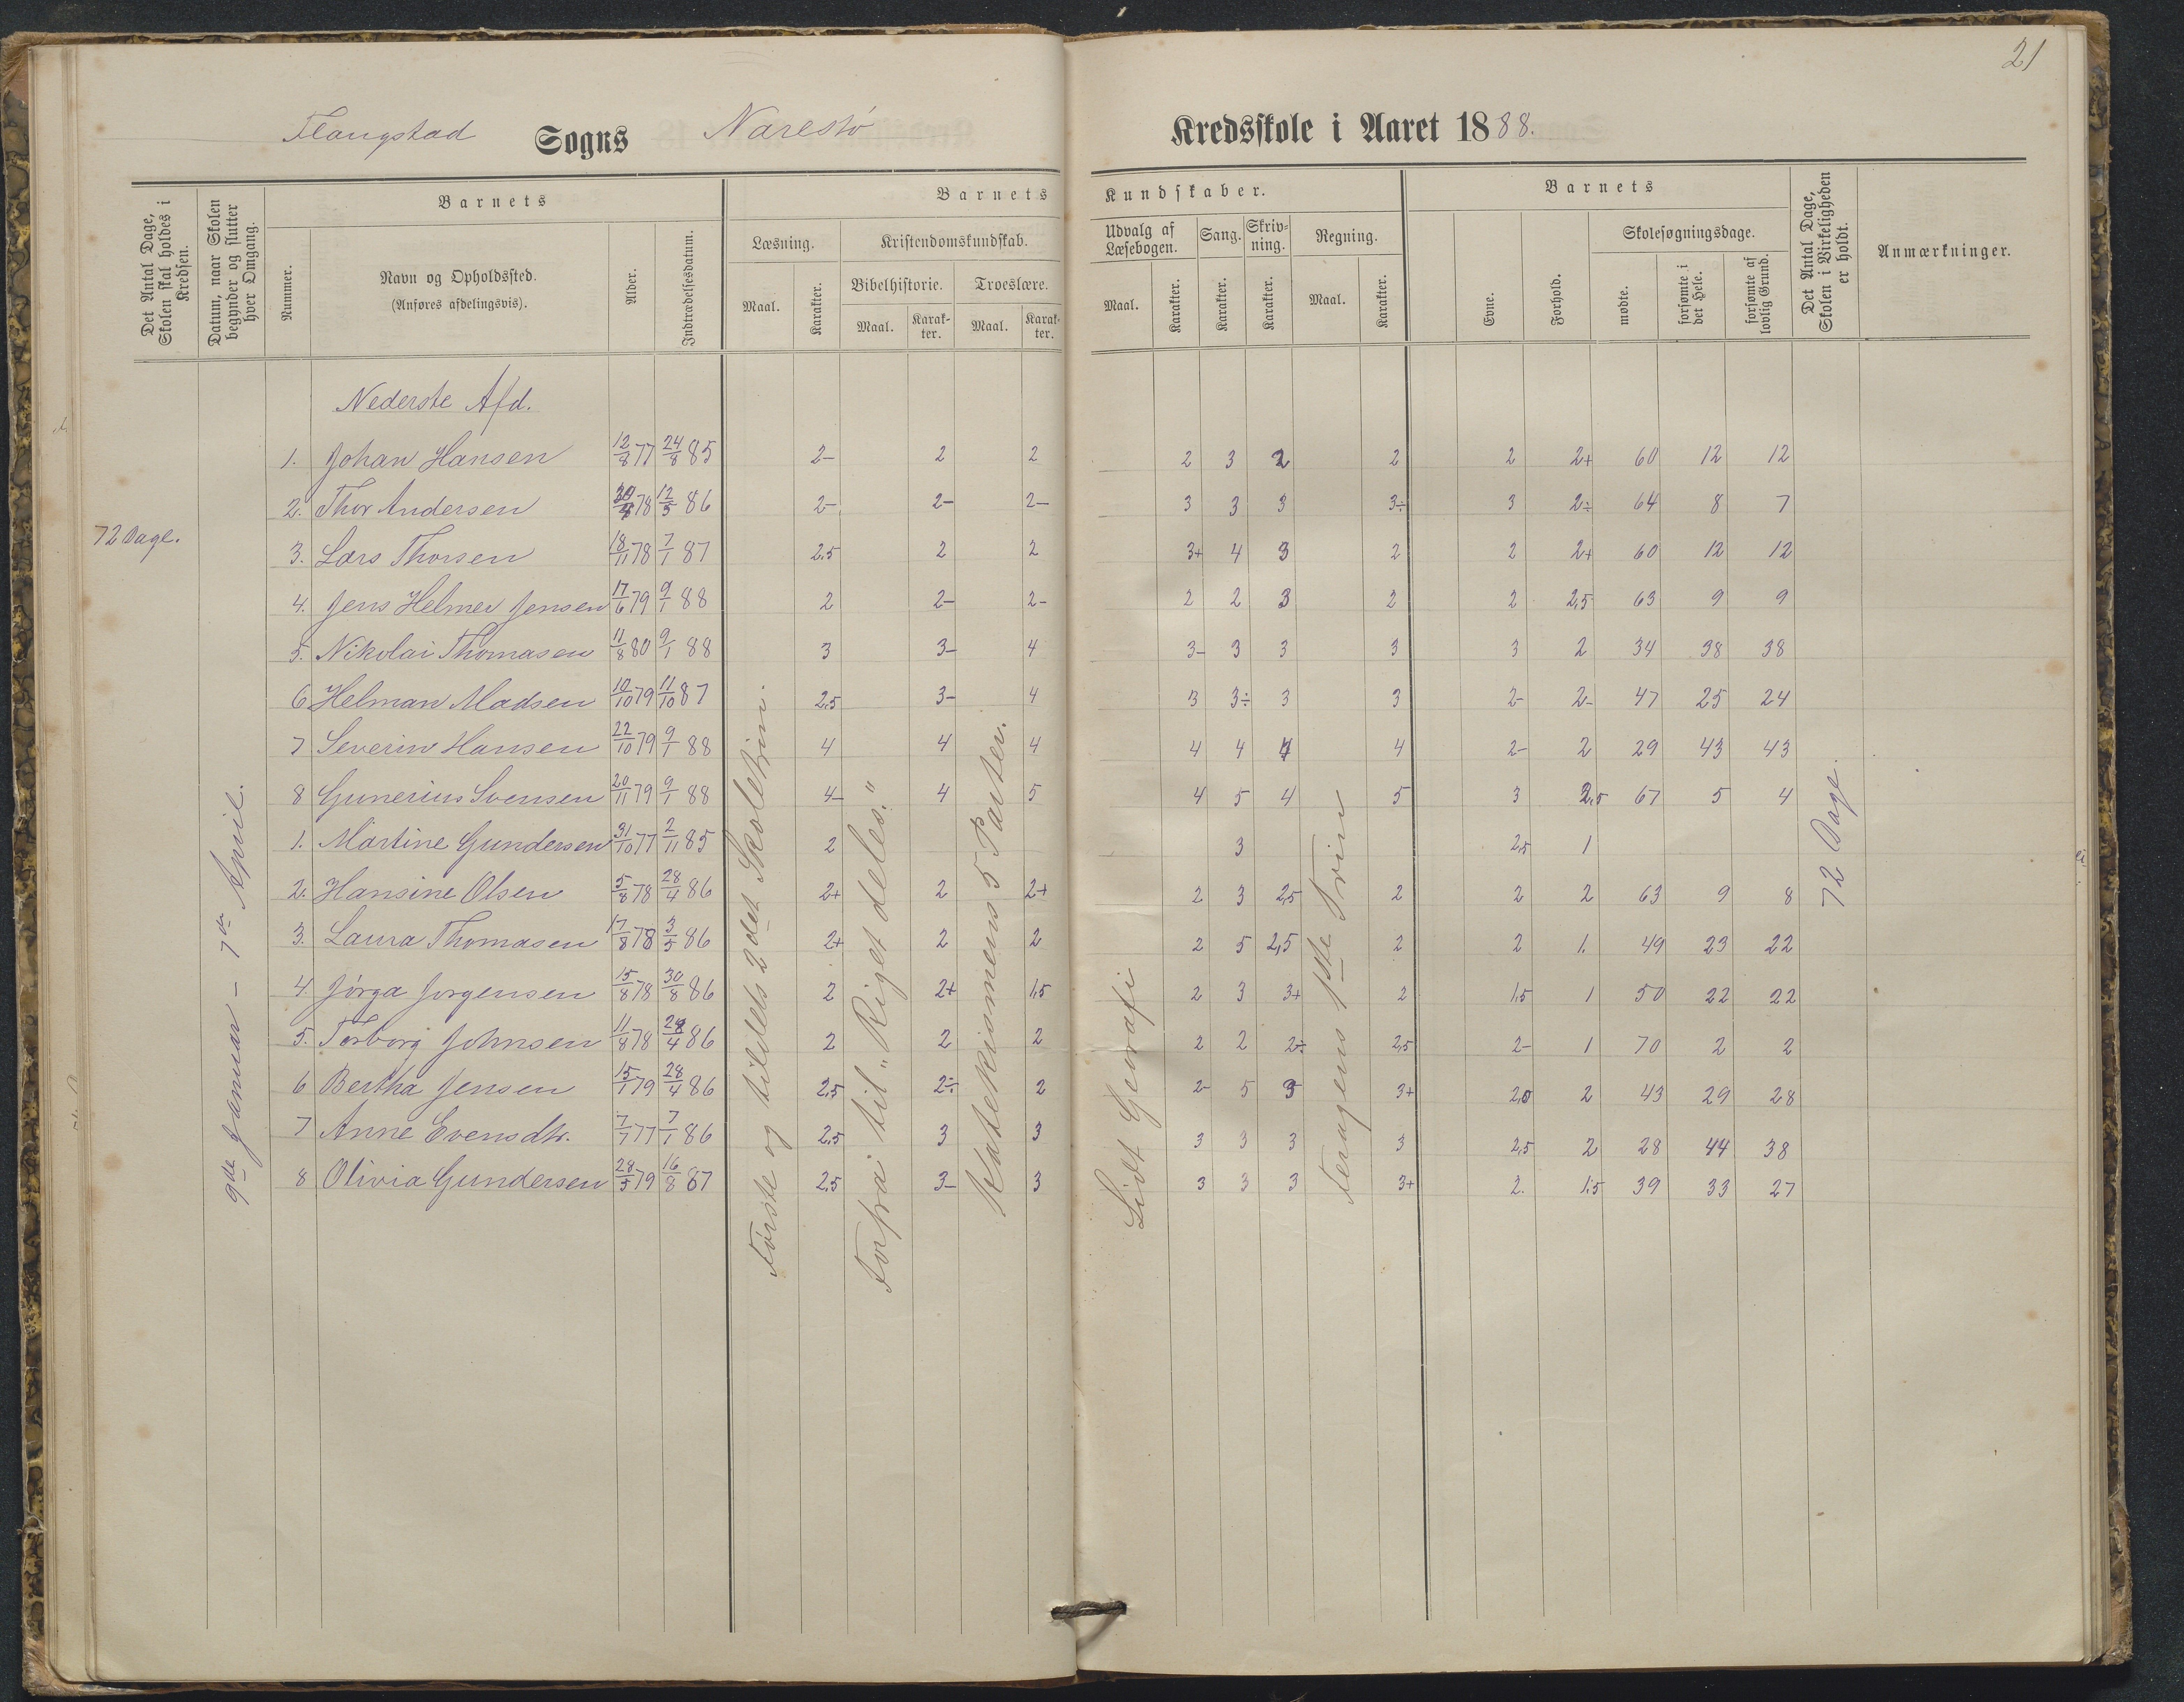 21
Flangstad Sogns Narestø Kredsskole i Aaret 1888.
Det Antal Dage, Skolen skal holdes i Kredsen.
Datum, naar Skolen begynder og slutter hver Omgang.
Barnets
Nummer.
Navn og Opholdssted.
(Anføres afdelingsvis).
Alder.
Indtrædelsesdatum.
Barnets Kundskaber.
Læsning.
Maal.
Karakter.
Kristendomskundskab.
Bibelhistorie.
Maal.
Karakter.
Troeslære.
Maal.
Karakter.
Udvalg af Læsebogen.
Maal.
Karakter.
Sang.
Karakter.
Skrivning.
Karakter.
Regning.
Maal.
Karakter.
Barnets
Evne.
Forhold.
Skolesøgningsdage.
mødte.
forsømte i det Hele.
forsømte af lovlig Grund.
Det Antal Dage, Skolen i Virkeligheden er holdt.
Anmærkninger.
Nederste Afd.
1. Johan Hansen 12/8 77 24/8 85 2- 2 2 2 3 2 2 2 2+ 60 12 12
2. Thor Andersen 78 12/5 86 2- 2- 2- 3 3 3 3÷ 3 2÷ 64 8 7
72 Dage.
3. Lars Thorsen 18/11 78 7/1 87 2,5 2 2 3+ 4 3 2 2 2+ 60 12 12
4. Jens Helmer Jensen 17/6 79 9/1 88 2 2- 2- 2 2 3 2 2 2,5 63 9 9
5. Nikolai Thomasen 11/8 80 9/1 88 3 3- 4 3- 3 3 3 3 2 34 38 38
6 Helman Madsen 10/10 79 11/10 87 2,5 3- 4 3 3÷ 3 3 2- 2- 47 25 24
7 Severin Hansen 22/10 79 9/1 88 4 4 4 4 4 4 4 2- 2 29 43 43
8 Gunerius Svensen 20/11 79 9/1 88 4- 4 5 4 5 4 5 3 2,5 67 5 4
1. Martine Gundersen 31/10 77 2/11 85 2 3 2,5 1
2. Hansine Olsen 5/8 78 28/4 86 2+ 2 2+ 2 3 2,5 2 2 2 63 9 8
3. Laura Thomasen 17/8 78 3/5 86 2+ 2 2 2 5 2,5 2 2 1. 49 23 22
4. Jörga Jorgensen 15/8 78 30/8 86 2 2+ 1,5 2 3 3+ 2 1,5 1 50 22 22
5. Torborg Johnsen 11/8 78 28/4 86 2 2 2 2 2 2÷ 2,5 2- 1 70 2 2
6 Bertha Jensen 15/1 79 28/4 86 2,5 2÷ 2 2- 5 3 3+ 2,5 2 43 29 28
7 Anne Evensdtr. 7/7 77 7/1 86 2,5 3 3 3 3 3 3 2,5 2 28 44 38
8 Olivia Gundersen 28/5 79 16/8 87 2,5 3- 3 3 3 3 3+ 2. 1,5 39 33 27
9de Januar - 7de April.
Første og tildels 2det Skoletrin.
Forfra til "Riget deles."
Katekismens 5 Parter.
Lidt Geografi
1ste Trin
72 Dage.